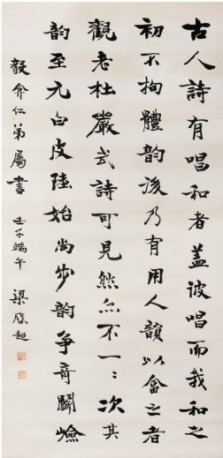 古人詩有唱和者蓋彼唱而我和之
初不拘體韻後乃有用人韻以畣之者
觀老杜嚴武詩可見然亦不一〻次其
韻至元白皮陸始尚步韻爭奇鬭嶮
毅弇仁弟屬書 壬子端午 梁啟超